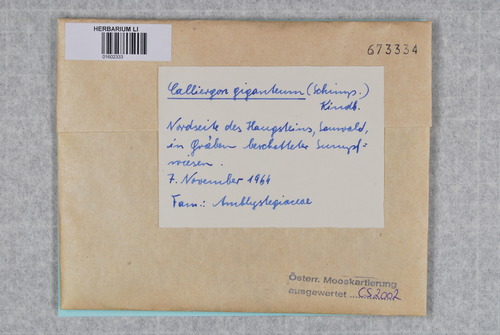 HERBARIUM LI
01602333
673334
Calliergon giganteum (Schimp.)
Kindb.
Nordseite des Haugsteins, Sauwald,
in Gräben beschatteter Sumpf=
wiesen.
7. November 1964
Fam.: Amblystegiaceae
Österr. Mooskartierung
ausgewertet ... CS2002